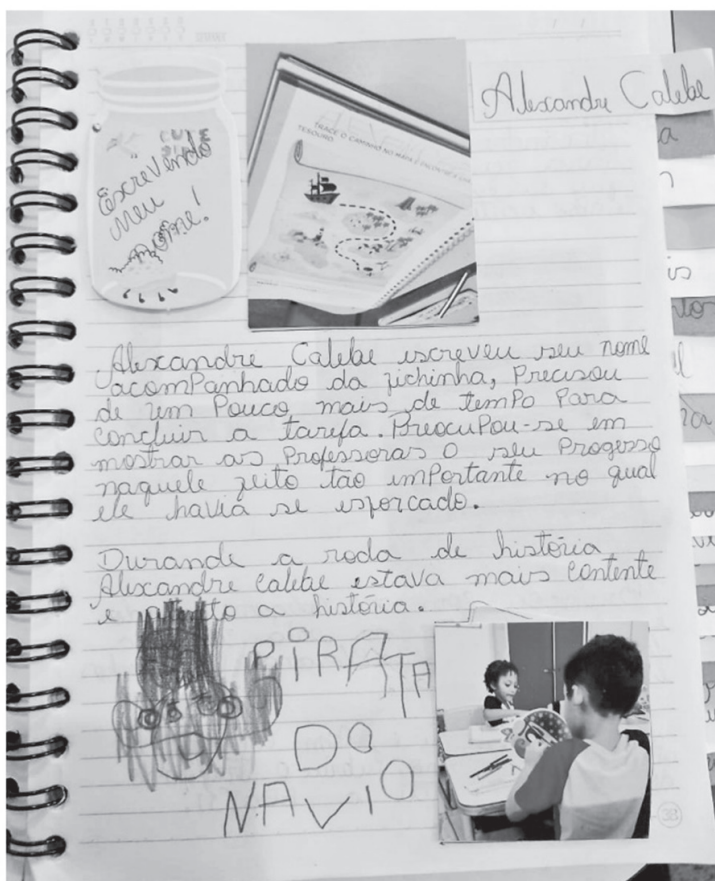 Alexandre Calebe
Escrevendo
meu
nome!
TRACE O CAMINHO NO MAPA E
TESOURO
Alexandre Calebe escreveu seu nome
acompanhado da fichinha, Precisou
de um Pouco mais de tempo Para
concluir a tarefa. Preocupou-se em
mostrar as Professoras o seu Progesso
naquele feito tão importante no qual
ele havia se esforcado.
Durande a roda de história
Alexandre Calebe estava mais contente
e atento a história.
PIRATA
DO
NAVIO
38